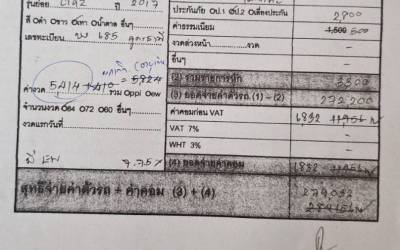 รุ่นย่อย CIAZ ปี 2017
สี O ดำ O ขาว O เทา O น้ำตาล อื่นๆ
เลขทะเบียน 685
5824
ค่างวด 5,414 รวม Oppi Oew
จำนวนงวด O84 O72 O60 อื่นๆ
งวดแรกวันที่
7.75%
ประกันภัย Oป.1 Oป.2 Oเตื่องประกัน 2,800
ค่าธรรมเนียม 1,500 500
งวดล่วงหน้า งวด
อื่นๆ
(2) รวมรายการหัก 3300
(3) ยอดจ่ายค่าตัวรถ (1) - (2) 272,200
ค่าคอมก่อน VAT 6,832 11956
VAT 7%
WHT 3%
(4) ยอดจ่ายค่าคอม 6832 11956
สุทธิจ่ายค่าตัวรถ + ค่าคอม (3) + (4) 279,032
284156